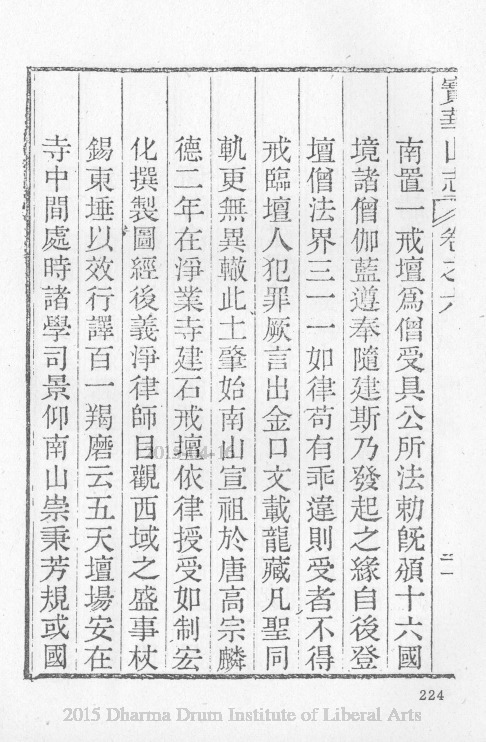 寳華山志 卷之六 二
南置一戒壇爲僧受具公所法勅旣頒十六國
境諸僧伽藍遵奉隨建斯乃發起之緣自後登
壇僧法界三一一如律苟有乖違則受者不得
戒臨壇人犯罪厥言出金口文載龍藏凡聖同
軌更無異轍此土肇始南山宣祖於唐高宗麟
德二年在淨業寺建石戒壇依律授受如制宏
化撰製圖經後義淨律師目觀西域之盛事杖
錫東埀以效行譯百一羯磨云五天壇場安在
寺中間處時諸學司景仰南山崇秉芳規或國
224
2015 Dharma Drum Institute of Liberal Arts